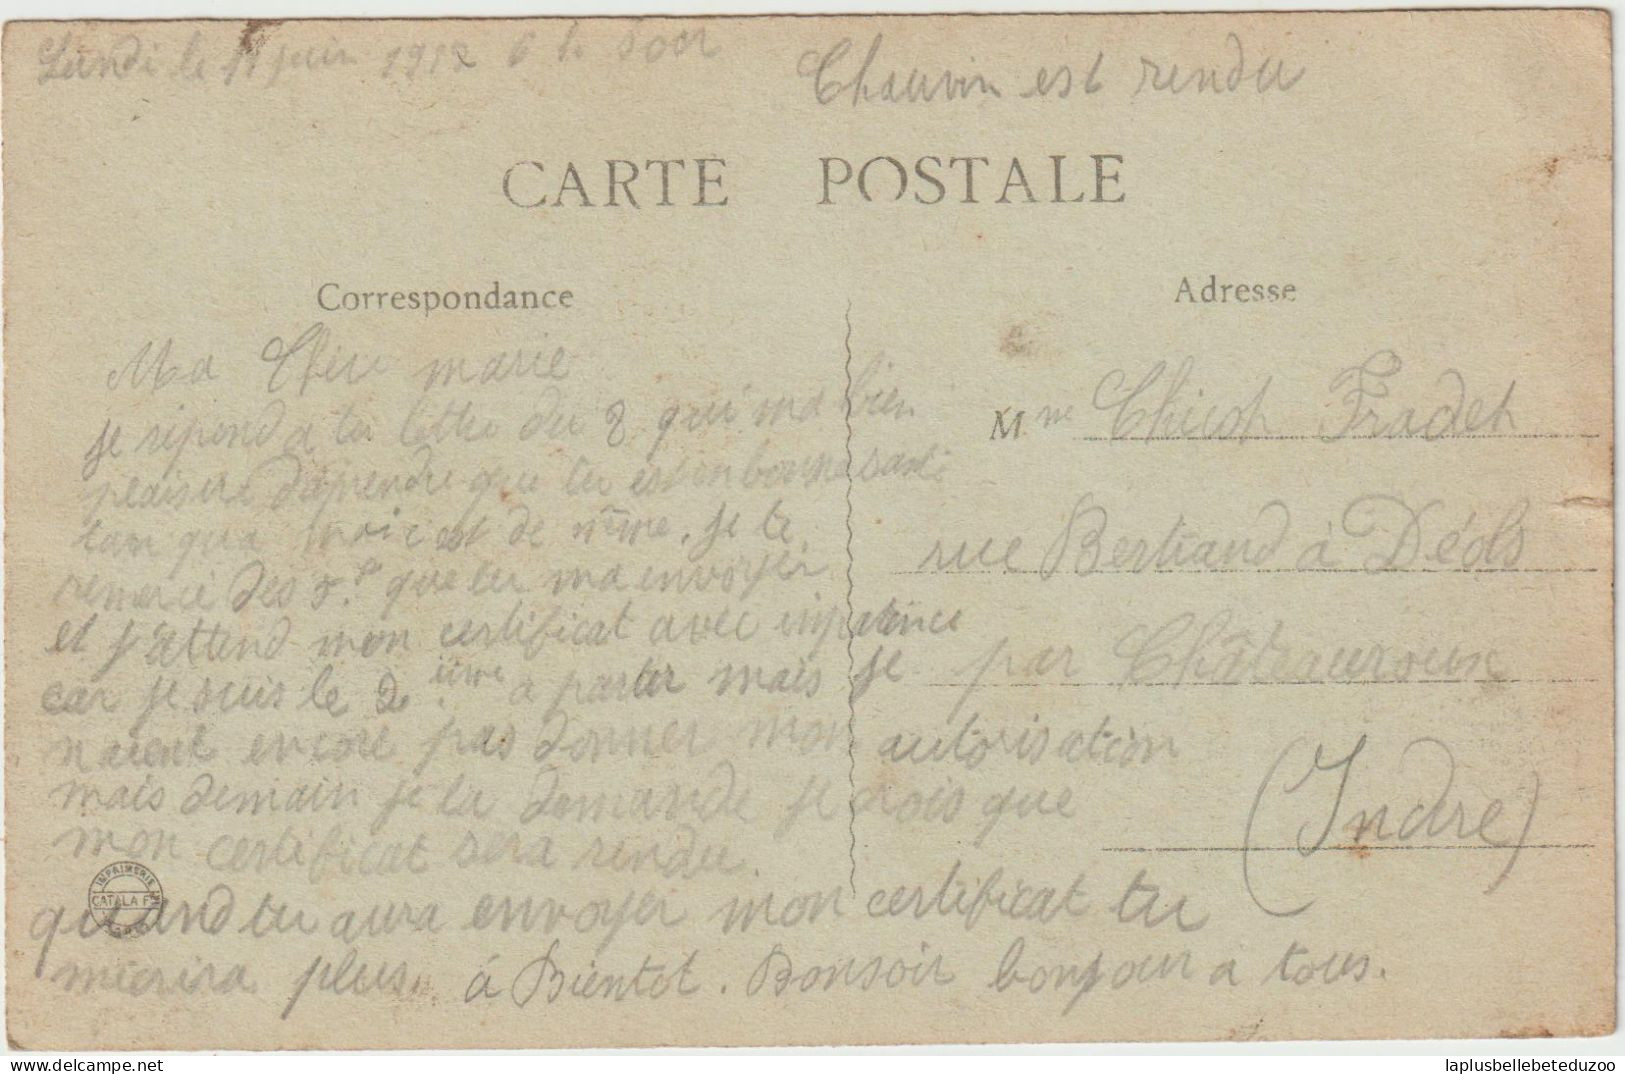 Lundi le 11 juin 1912 6 h soir
Chauvin est rendu
CARTE POSTALE
Correspondance
Adresse
Ma Chère marie
je répond a ta lettre du 8 qui ma bien
plaisire daprendre que tu est en bonne santé
tan qua moi cest de même. je te
remercie des 5.f que tu ma envoyer
et j'attend mon certificat avec impatience
car je suis le 2.ième a partir mais je
naient encore pas donner mon autorisation
mais demain je la demande je crois que
mon certificat sera rendu
quand tu aura envoyer mon certificat tu
mécrira plus. á Bientot. Bonsoir bonjour a tous.
Mme Chicot Fradet
rue Bertrand à Déols
par Châteauroux
(Indre)
IMPRIMERIE
CATALA F
laplusbellebeteduzoo